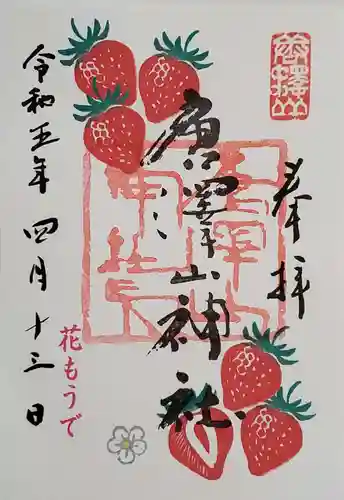 奉拝
唐澤山神社
令和五年 四月 十三日
花もうで